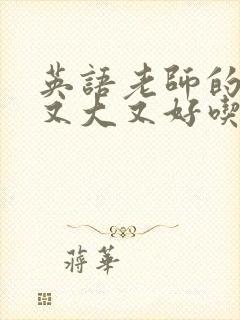 英語老師的
又大又好喫
蔣華